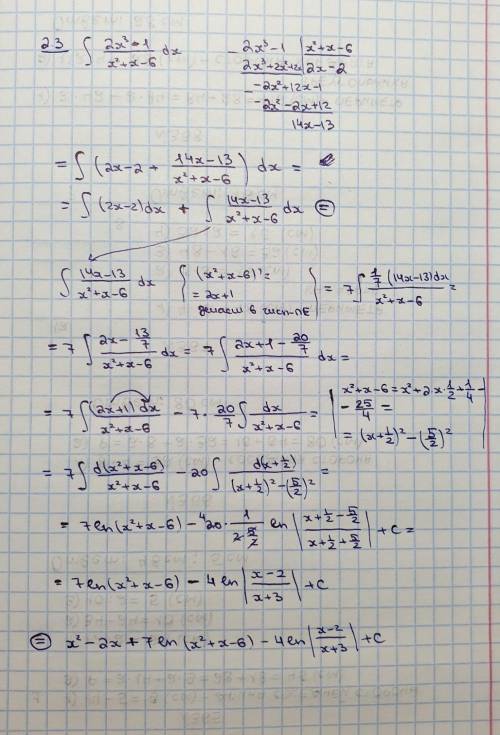 23 ∫ (2x³-1)/(x²+x-6) dx
2x³-1 | x²+x-6
2x³+2x²+2x | 2x-2
-2x²+12x-1
-2x²-2x+12
14x-13
= ∫ (2x-2 + (14x-13)/(x²+x-6)) dx =
= ∫ (2x-2)dx + ∫ (14x-13)/(x²+x-6) dx ⊜
∫ (14x-13)/(x²+x-6) dx { (x²+x-6)' = = 2x+1 делаем в числ-ле } = 7∫ (1/7 (14x-13)dx)/(x²+x-6) =
= 7∫ (2x - 13/7)/(x²+x-6) dx = 7∫ (2x+1 - 20/7)/(x²+x-6) dx =
= 7∫ ((2x+1) dx)/(x²+x-6) - 7 · 20/7 ∫ dx/(x²+x-6) = | x²+x-6 = x²+2x·1/2+1/4 -
- 25/4 =
= (x+1/2)² - (5/2)² |
= 7∫ d(x²+x-6)/(x²+x-6) - 20∫ d(x+1/2)/((x+1/2)²-(5/2)²) =
= 7ln(x²+x-6) - ⁴20 · 1/(2·5/2) ln|(x+1/2-5/2)/(x+1/2+5/2)| + C =
= 7ln(x²+x-6) - 4ln|(x-2)/(x+3)| + C
⊜ x²-2x+7ln(x²+x-6) - 4ln|(x-2)/(x+3)| + C